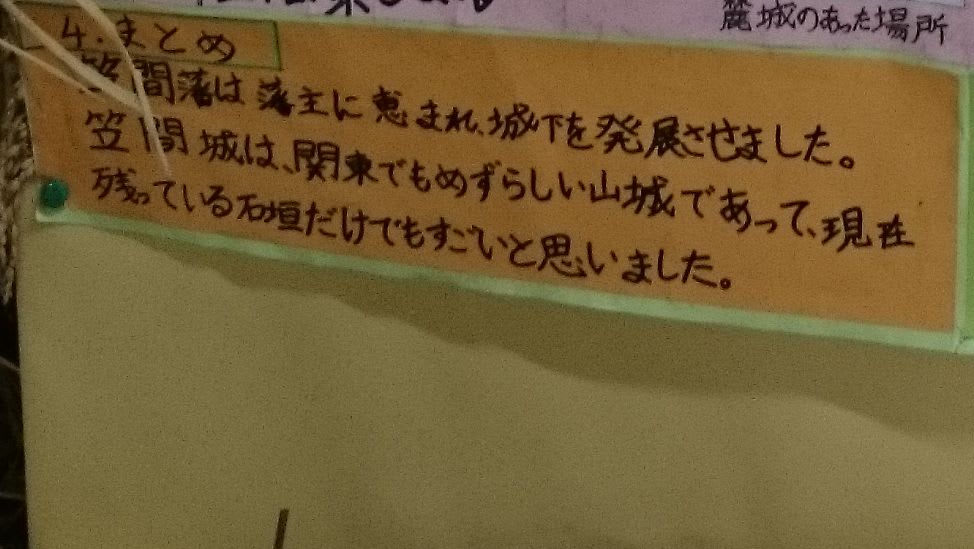 麓城のあった場所
4.まとめ
笠間藩は藩主に恵まれ、城下を発展させました。
笠間城は、関東でもめずらしい山城であって、現在
残っている石垣だけでもすごいと思いました。